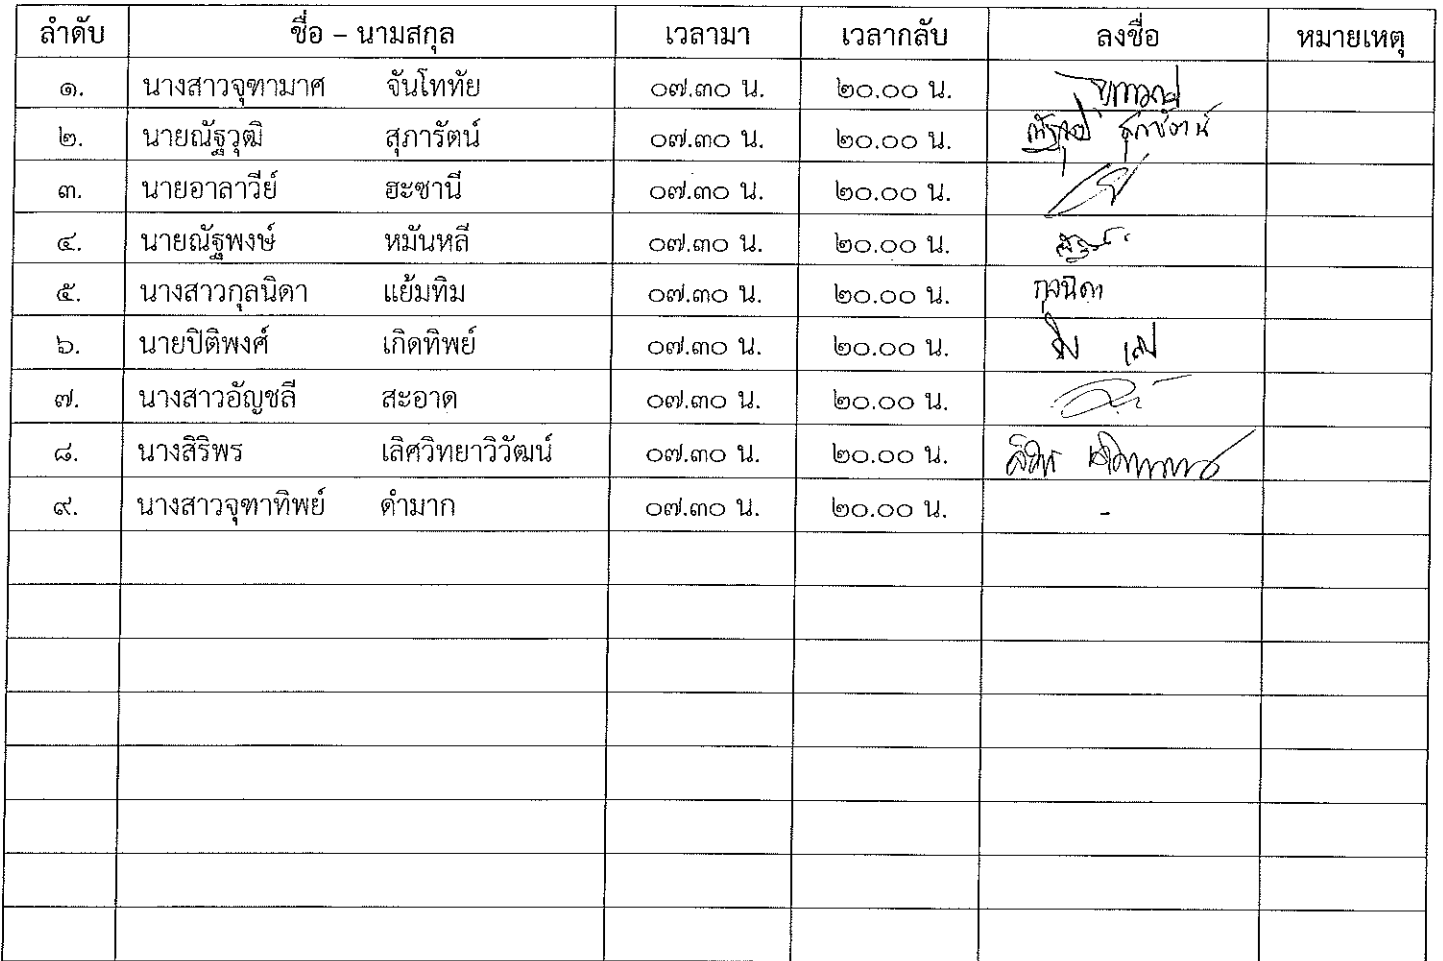 ลำดับ ชื่อ – นามสกุล เวลามา เวลากลับ ลงชื่อ หมายเหตุ
๑. นางสาวจุฑามาศ จันโททัย ๐๗.๓๐ น. ๒๐.๐๐ น.
๒. นายณัฐวุฒิ สุภารัตน์ ๐๗.๓๐ น. ๒๐.๐๐ น.
๓. นายอาลาวีย์ ฮะซานี ๐๗.๓๐ น. ๒๐.๐๐ น.
๔. นายณัฐพงษ์ หมันหลี ๐๗.๓๐ น. ๒๐.๐๐ น.
๕. นางสาวกุลนิดา แย้มทิม ๐๗.๓๐ น. ๒๐.๐๐ น. กุลนิดา
๖. นายปิติพงศ์ เกิดทิพย์ ๐๗.๓๐ น. ๒๐.๐๐ น.
๗. นางสาวอัญชลี สะอาด ๐๗.๓๐ น. ๒๐.๐๐ น.
๘. นางสิริพร เลิศวิทยาวิวัฒน์ ๐๗.๓๐ น. ๒๐.๐๐ น.
๙. นางสาวจุฑาทิพย์ ดำมาก ๐๗.๓๐ น. ๒๐.๐๐ น. -